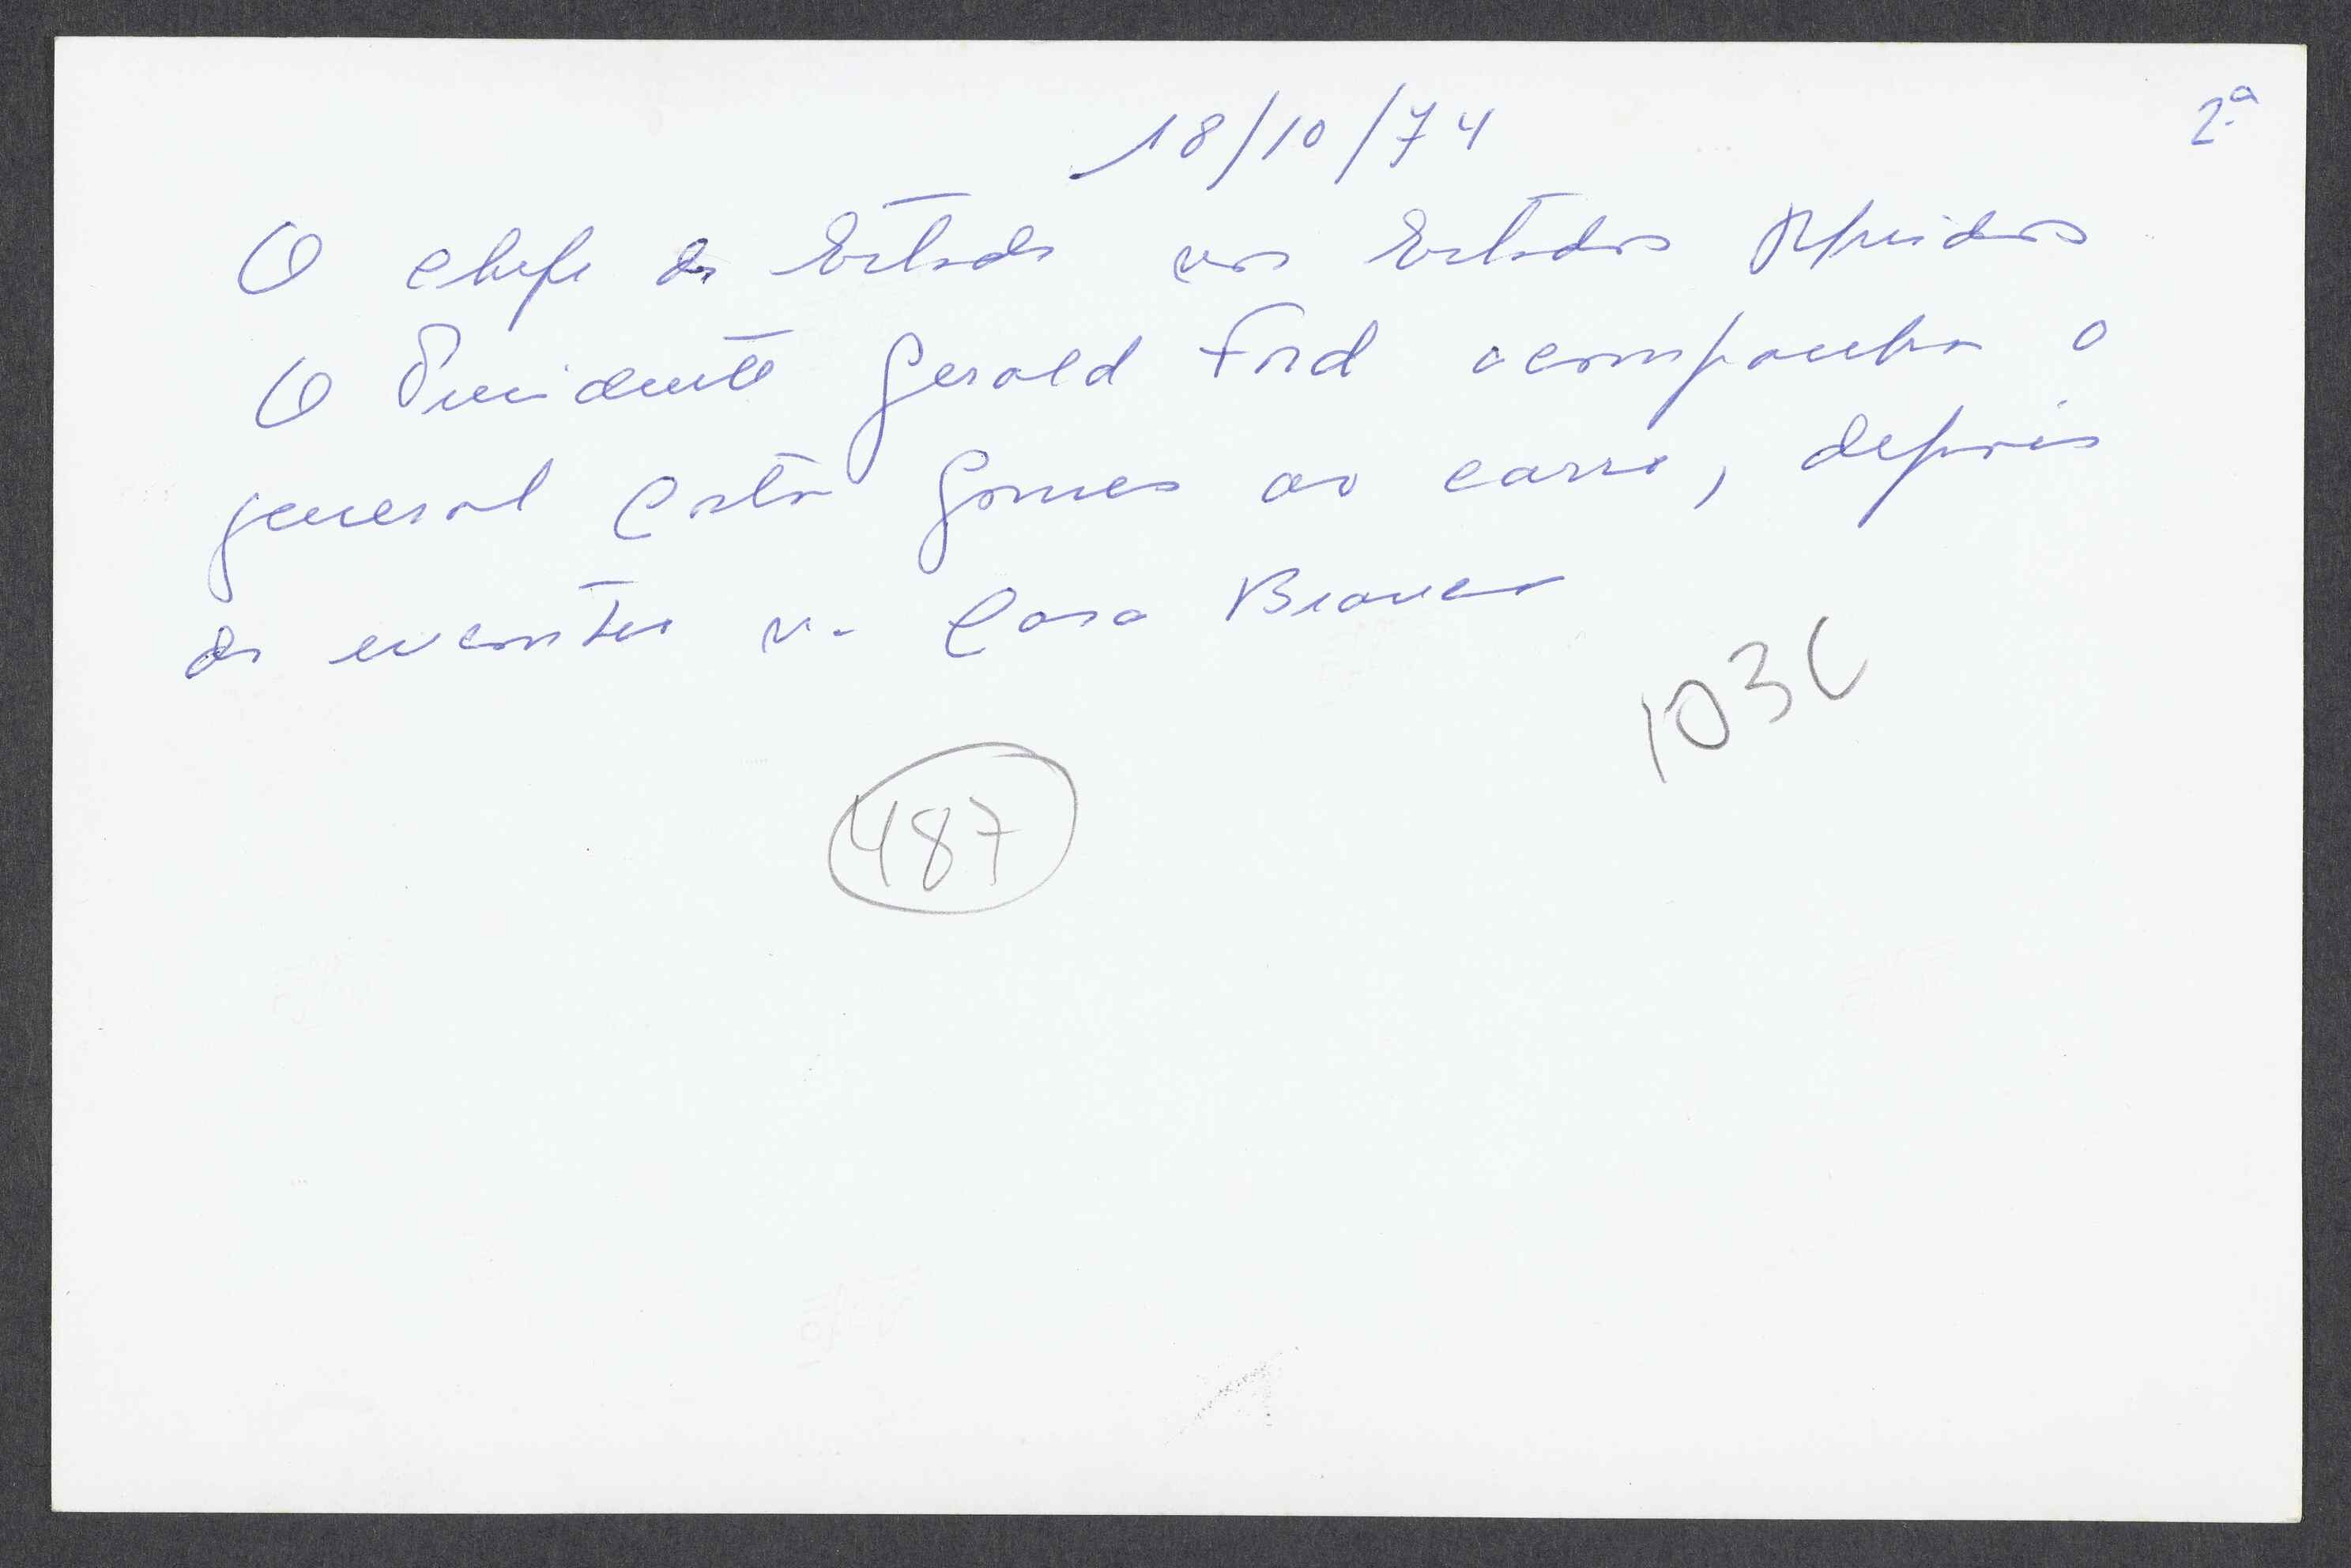 2.ª
18/10/74
O chefe do Estado nos Estados Unidos
O Presidente Gerald Ford acompanha o
general Costa Gomes ao carro, depois
do encontro na Casa Branca
103C
487